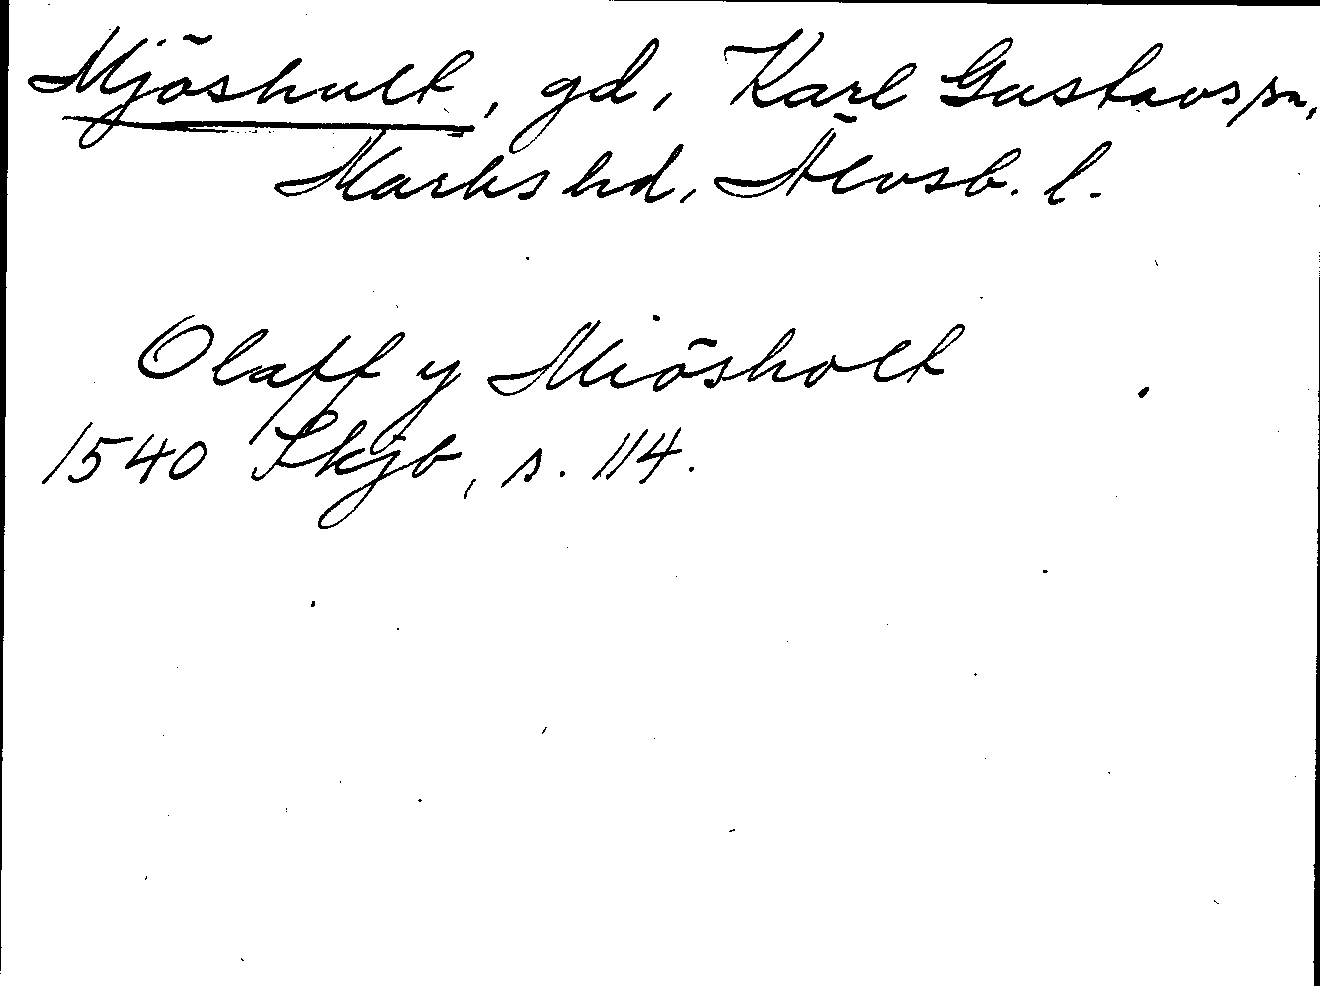 Mjöshult, gd, Karl Gustavs sn,
Marks hd, Älvsb. l.
Olaff y Miösholt
1540 Skjb, s. 114.